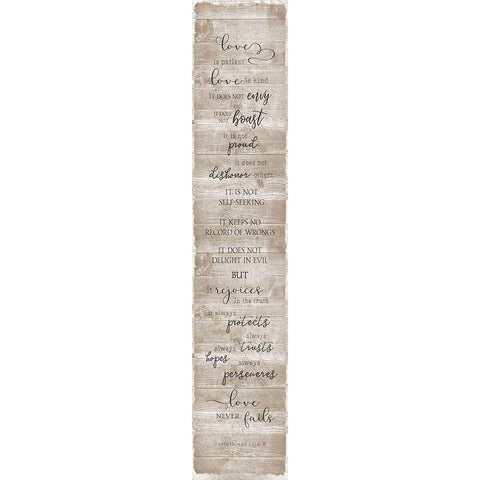 love
is patient
love is kind
IT DOES NOT envy
IT DOES
NOT boast
it is not
proud
it does not
dishonor others
IT IS NOT
SELF SEEKING
IT KEEPS NO
RECORD OF WRONGS
IT DOES NOT
DELIGHT IN EVIL
BUT
it rejoices
in the truth
it always
protects
always
always trusts
hopes always
perseveres
love
NEVER fails
Corinthians 13:4-8